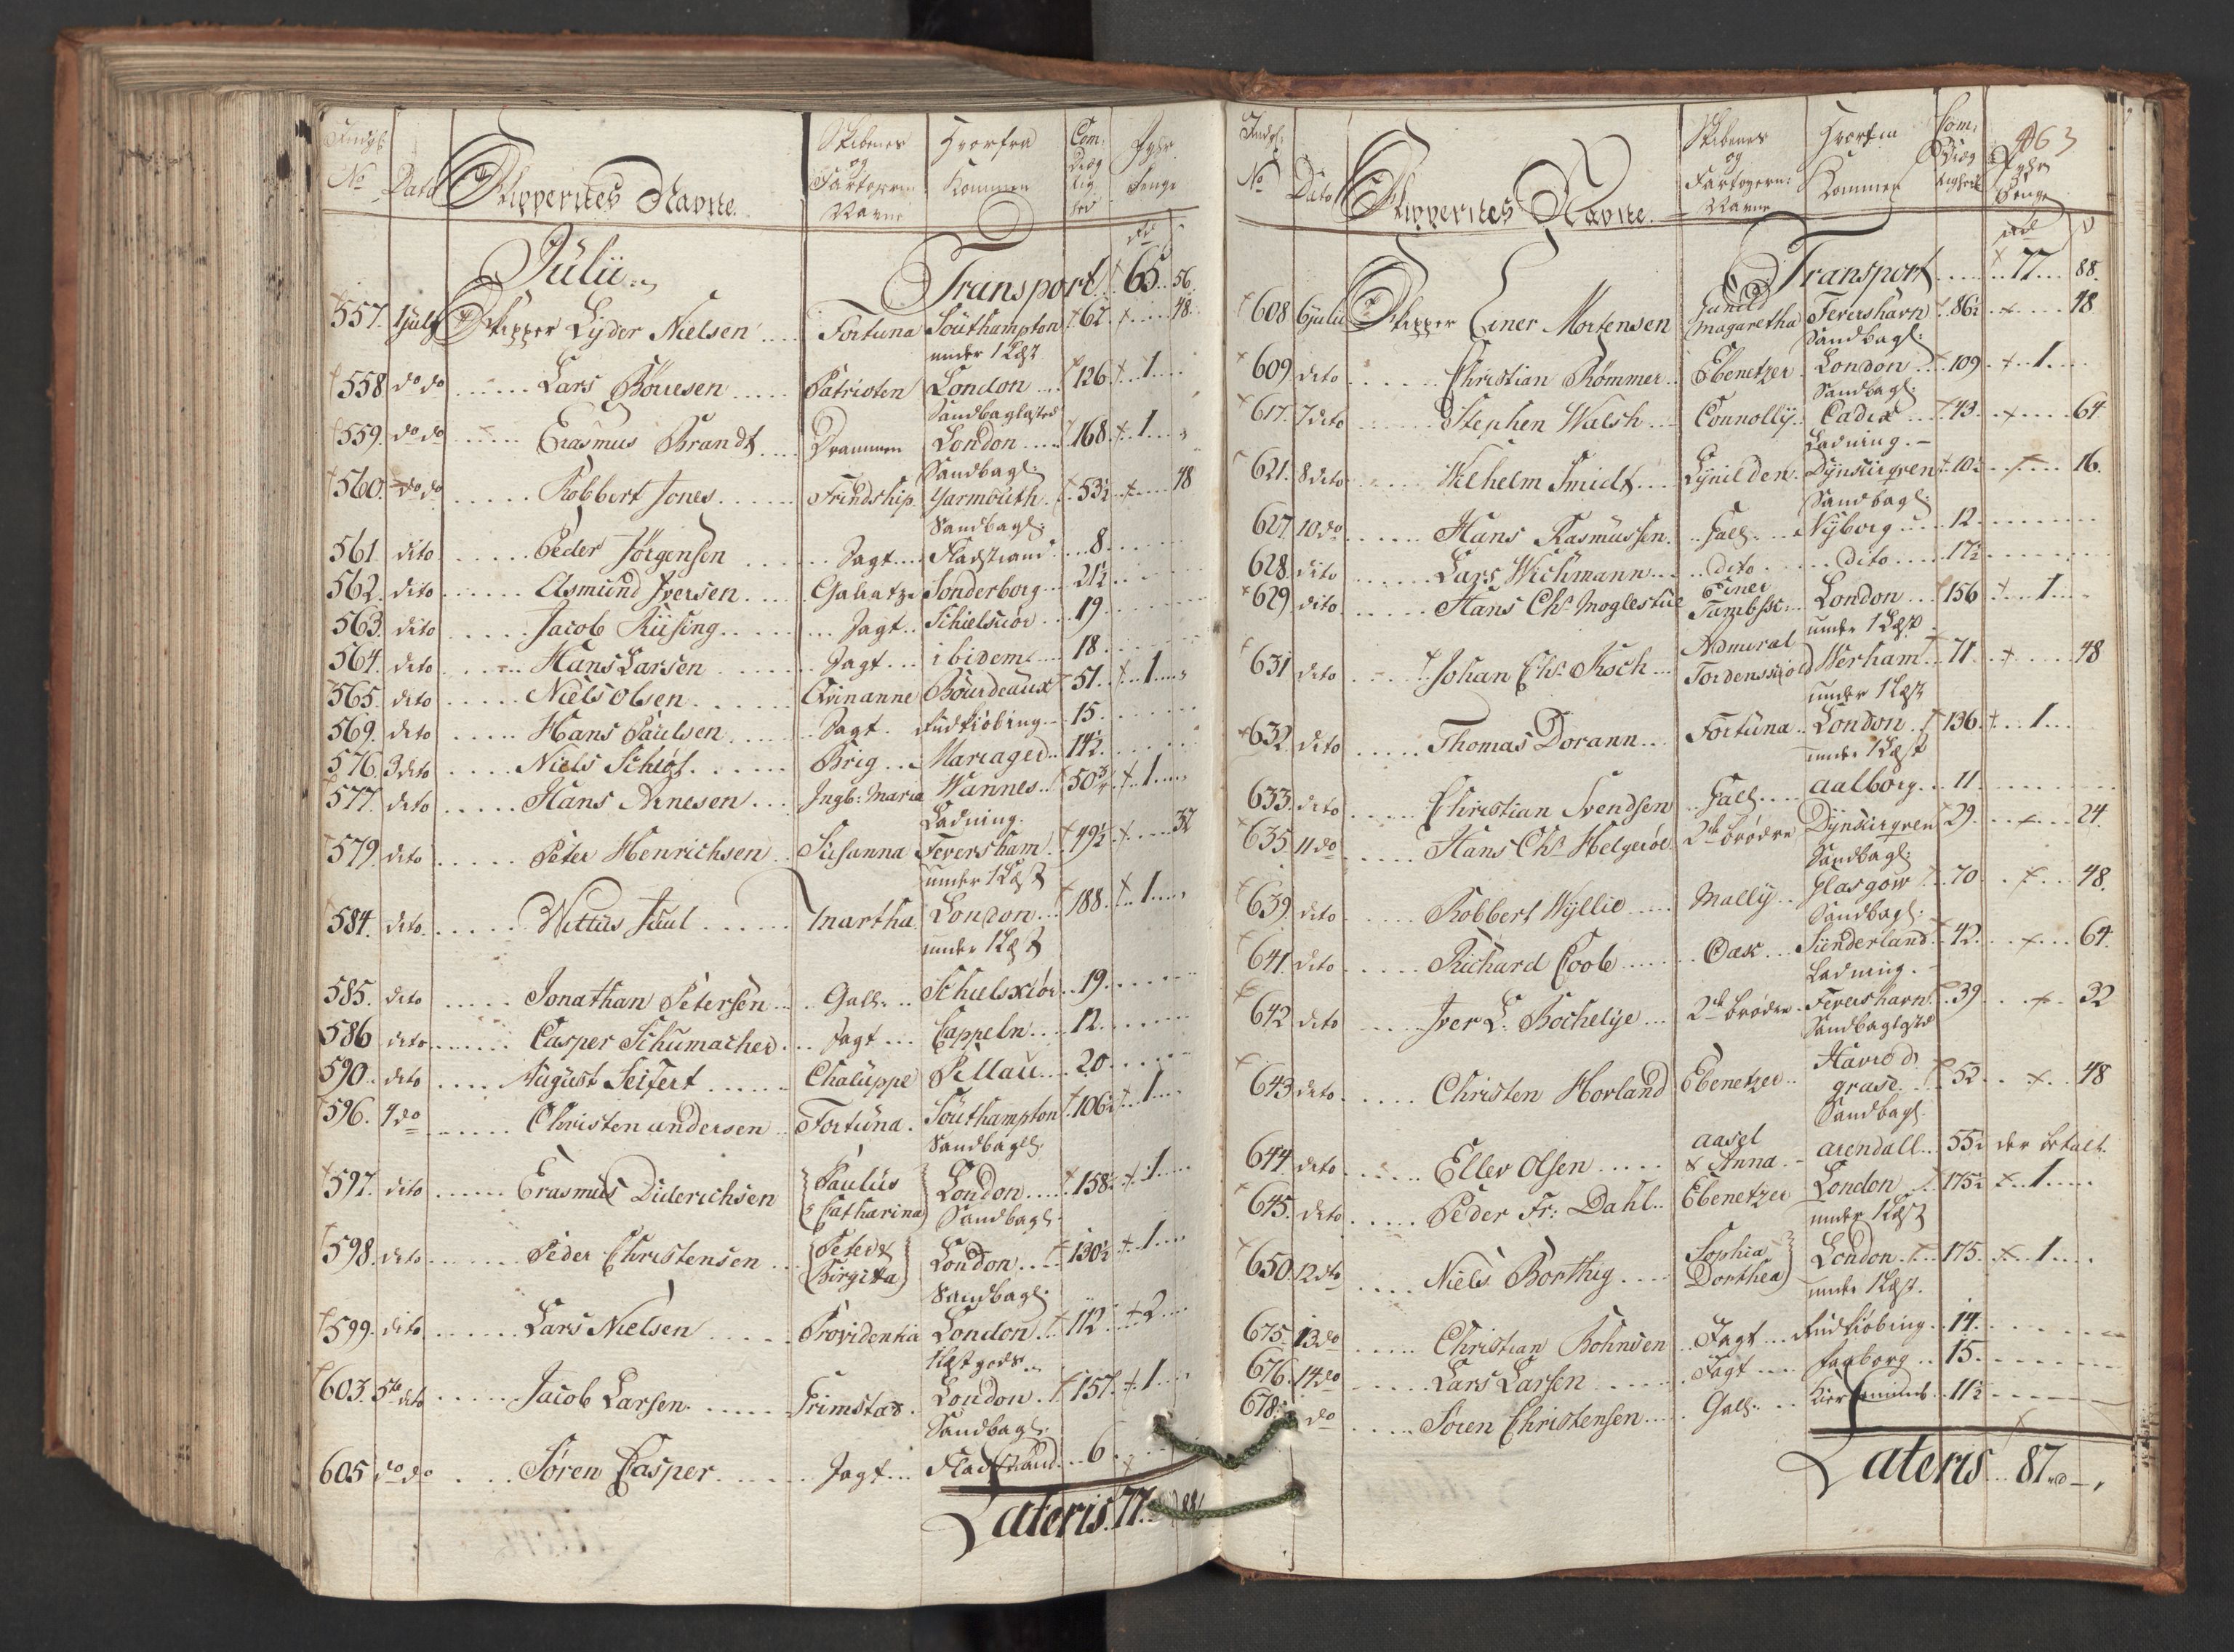 No
Dato
Skippernes Navne
Skibenes
og
Fartøyernes
Navne
Hvorfra
Kommen
Com:
Dræg
tig
hed
Fyhr
Penge
Julii
Transport 65 56
557. 1 july Skipper Lyder Nielsen Fortuna Southampton 62 48
under 1 Læst
558 do do Lars Böuesen Patrioten London 126 1
Sandbaglasted
559. do do Erasmus Brandt Drammen London 168 1
Sandbagl:
560. do do Robbert Jones Frindship Yarmouth 53½ 48
Sandbagl:
561. dito Peder Jörgensen Jagt Fladstrand 8
562. dito Asmund Iversen Galeatze Sonderborg 21½
563. dito Jacob Riising Jagt Schielskiör 19
564. dito Hans Larsen Jagt ibidem 18
565. dito Niels Olsen Qvinanne Bourdeaux 51 1
569. dito Hans Paulsen Jagt Rudkiöbing 15
576. 3 dito Niels Schiøt Brig Mariager 14½
577. dito Hans Arnesen Ingb: Maria Vannes 50¾ 1
Ladning.
579. dito Peter Henrichsen Susanna Feversham 49½ 32
under 1 Læst
584. dito Wittus Juul Martha London 188 1
under 1 Læst
585. dito Jonathan Petersen Gall: Schielskiör 19
586 dito Casper Schumacher Jagt Cappeln 12
590. dito August Seifert Chaluppe Pillau 20
596. 4 do Christen Andersen Fortuna Southampton 106½ 1
Sandbagl:
597. dito Erasmus Diderichsen Paulus
Catharina London 158½ 1
Sandbagl:
598. dito Peder Christensen Peter &
Birgitta London 130½ 1
Sandbagl:
599. dito Lars Nielsen Providentia London 112 2
1 Læst gods
603. 5te dito Jacob Larsen Grimstad London 157 1
Sandbagl:
605 do do Søren Casper Jagt Fladstrand 6
Lateris 77 88
463
No
Dato
Skippernes Navne
Skibenes
og
Fartøyern:
Navne
Hvorfra
Kommen
Com:
Dræg
tighed
Fyhr
Penge
Transport 77 88.
608 6 julii Skipper Einer Mortensen Gunild
Magaretha Fevershavn 86½ 48
Sandbagl:
609 dito Christian Römmer Ebenetzer London 109 1
Sandbagl
617. 7 dito Stephen Walsh Connolly Cadix 43 64
Ladning.
621. 8 dito Wilhelm Smidt Lynilden Dynkirqven 10½ 16.
Sandbagl:
627. 10 do Hans Rasmussen Gall: Nyborg 12
628. dito Lars Wichmann dito dito 17½
629. dito Hans Chr. Moglestue Einer
Tambsk: London 156 1
under 1 Læst
631 dito Johan Chr. Koch Admiral
Tordenskiold Werham 71 48
under 1 Læst
632. dito Thomas Dorann Fortuna London 136 1
under 1 Læst
633. dito Christian Svendsen Gall: Aalborg 11
635. 11 do Hans Chr. Helgerøe 2de Brødre Dynkirqven 29 24
Sandbagl:
639. dito Robbert Wyllie Mally Glasgow 70 48.
Sandbagl:
641. dito Richard Coole Oak Sunderland 42 64
Ladning.
642 dito Iver L: Bochelye 2de Brødre Fevershavn 39 32
Sandbaglasted
643 dito Christen Horland Ebenetzer Havre d
grase 52 48
Sandbagl.
644. dito Ellev Olsen Aasel
& Anna Arendall 55½ der betalt.
645. dito Peder Fr: Dahl Ebenetzer London 175½ 1
under 1 Læst
650. 12 do Niels Borthig Sophia
Dorthea London 175 1
under 1 Læst.
675. 13 do Christian Bohnsen Jagt Rudkiöbing 14
676. 14 do Lars Larsen Jagt Faaborg 15
678. do Sören Christensen Gall: Kierteminde 11½
Lateris 87